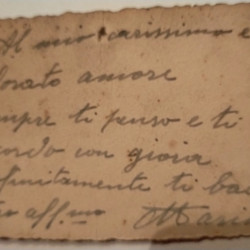 Al mio carissimo e
dorato amore
empre ti penso e ti
cordo con gioia
finitamente ti ba
aff.mo Mari